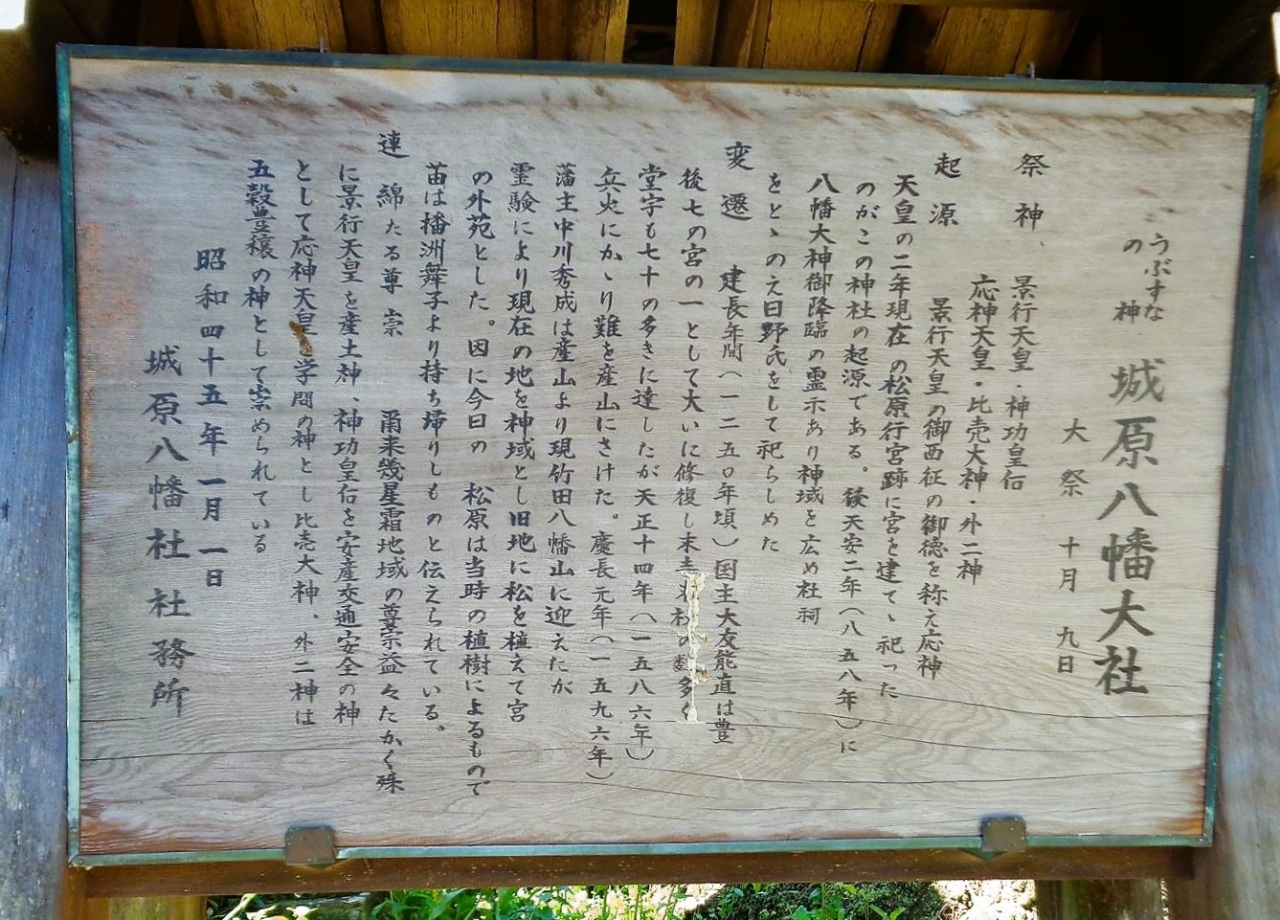 うぶすなの神 城原八幡大社
大祭 十月 九日
祭神 景行天皇・神功皇后
応神天皇・比売大神・外二神
起源 景行天皇の御西征の御徳を称え応神
天皇の二年現在の松原行宮跡に宮を建てゝ祀った
のがこの神社の起源である。後天安二年(八五八年)に
八幡大神御降臨の霊示あり神域を広め社祠
をとゝのえ日野氏をして祀らしめた
変遷 建長年間(一二五〇年頃)国主大友能直は豊
後七の宮の一として大いに修復し末 社の数多く
堂宇も七十の多きに達したが天正十四年(一五八六年)
兵火にかゝり難を産山にさけた。慶長元年(一五九六年)
藩主中川秀成は産山より現竹田八幡山に迎えたが
霊験により現在の地を神域とし旧地に松を植えて宮
の外苑とした。因に今日の 松原は当時の植樹によるもので
苗は播洲舞子より持ち帰りしものと伝えられている。
連綿たる尊崇 爾来幾星霜地域の尊宗益々たかく殊
に景行天皇を産土神、神功皇后を安産交通安全の神
として応神天皇を学問の神とし比売大神、外二神は
五穀豊穣の神として崇められている
昭和四十五年一月一日
城原八幡社社務所